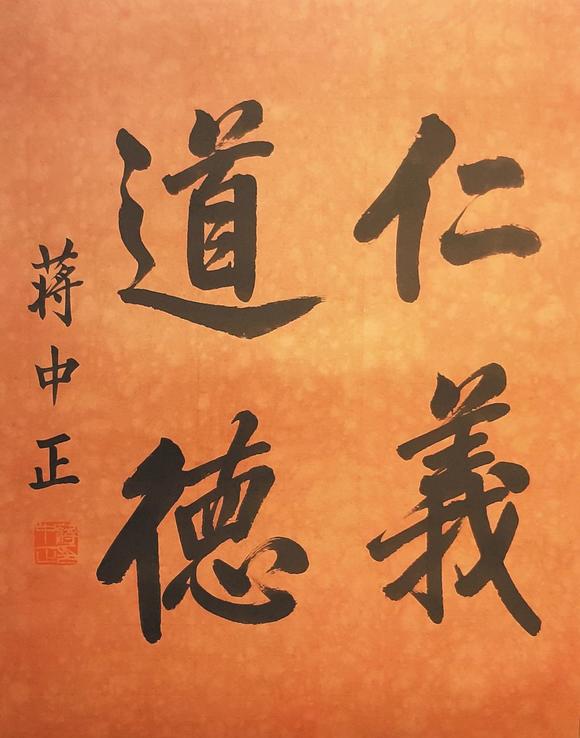 仁義
道德
蔣中正